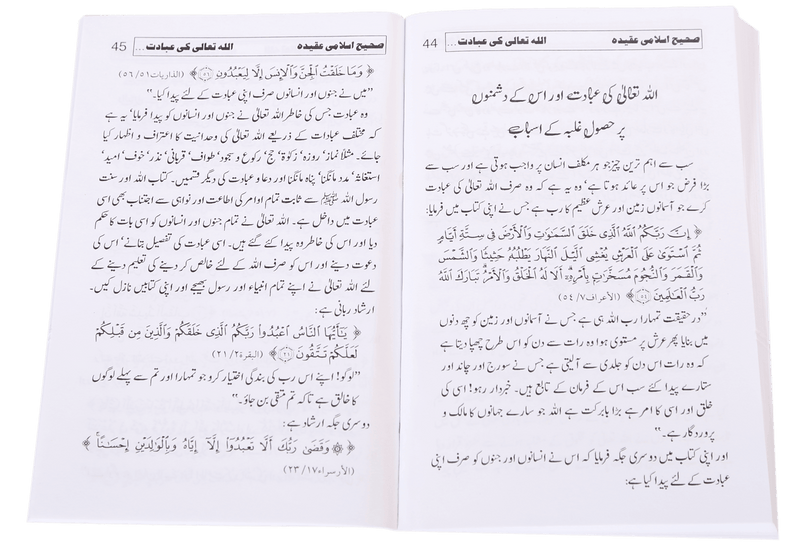 44
اللہ تعالی کی عبادت ...
صحیح اسلامی عقیدہ
اللہ تعالیٰ کی عبادت اور اس کے دشمنوں
پر حصول غلبہ کے اسباب
سب سے اہم ترین چیز جو ہر مکلف انسان پر واجب ہوتی ہے اور سب سے
بڑا فرض جو اس پر عائد ہوتا ہے' وہ یہ ہے کہ وہ صرف اللہ تعالیٰ کی عبادت
کرے جو آسمانوں زمین اور عرش عظیم کا رب ہے جس نے اپنی کتاب میں فرمایا:
﴿ إِنَّ رَبَّكُمُ اللَّهُ الَّذِي خَلَقَ السَّمَاوَاتِ وَالْأَرْضَ فِي سِتَّةِ أَيَّامٍ
ثُمَّ اسْتَوَى عَلَى الْعَرْشِ يُغْشِي اللَّيْلَ النَّهَارَ يَطْلُبُهُ حَثِيثًا وَالشَّمْسَ
وَالْقَمَرَ وَالنُّجُومَ مُسَخَّرَاتٍ بِأَمْرِهِ أَلَا لَهُ الْخَلْقُ وَالْأَمْرُ تَبَارَكَ اللَّهُ
رَبُّ الْعَالَمِينَ (٥٤) ﴾ (الأعراف٧/ ٥٤)
"در حقیقت تمہارا رب اللہ ہی ہے جس نے آسمانوں اور زمین کو چھ دنوں
میں بنایا پھر عرش پر مستوی ہوا وہ رات سے دن کو اس طرح چھپا دیتا ہے
کہ وہ رات اس دن کو جلدی سے آ لیتی ہے جس نے سورج اور چاند اور
ستارے پیدا کئے سب اس کے فرمان کے تابع ہیں۔ خبردار رہو! اسی کی
خلق اور اسی کا امر ہے بڑا بابرکت ہے اللہ جو سارے جہانوں کا مالک و
پروردگار ہے۔"
اور اپنی کتاب میں دوسری جگہ فرمایا کہ اس نے انسانوں اور جنوں کو صرف اپنی
عبادت کے لئے پیدا کیا ہے:
45
اللہ تعالی کی عبادت ...
صحیح اسلامی عقیدہ
﴿ وَمَا خَلَقْتُ الْجِنَّ وَالْإِنسَ إِلَّا لِيَعْبُدُونِ (٥٦) ﴾ (الذاریات٥١/ ٥٦)
"میں نے جنوں اور انسانوں صرف اپنی عبادت کے لئے پیدا کیا۔"
وہ عبادت جس کی خاطر اللہ تعالیٰ نے جنوں اور انسانوں کو پیدا فرمایا' یہ ہے
کہ مختلف عبادات کے ذریعے اللہ تعالیٰ کی وحدانیت کا اعتراف و اظہار کیا
جائے۔ مثلاً نماز' روزہ' زکوٰۃ' حج' رکوع و سجود' طواف' قربانی' نذر' خوف' امید'
استغاثہ' مدد مانگنا' پناہ مانگنا اور دعا و عبادت کی دیگر قسمیں۔ کتاب اللہ اور سنت
رسول اللہ ﷺ سے ثابت تمام اوامر کی اطاعت اور نواہی سے اجتناب بھی اسی
عبادت میں داخل ہے۔ اللہ تعالیٰ نے تمام جنوں اور انسانوں کو اسی بات کا حکم
دیا اور اس کی خاطر وہ پیدا کئے گئے ہیں۔ اسی عبادت کی تفصیل بتانے' اس کی
دعوت دینے اور اس کو صرف اللہ کے لئے خالص کر دینے کی تعلیم دینے کے
لئے اللہ تعالیٰ نے اپنے تمام انبیاء اور رسول بھیجے اور اپنی کتابیں نازل کیں۔
ارشاد ربانی ہے:
﴿ يَا أَيُّهَا النَّاسُ اعْبُدُوا رَبَّكُمُ الَّذِي خَلَقَكُمْ وَالَّذِينَ مِن قَبْلِكُمْ
لَعَلَّكُمْ تَتَّقُونَ (٢١) ﴾ (البقرة٢/ ٢١)
"لوگو! اپنے اس رب کی بندگی اختیار کرو جو تمہارا اور تم سے پہلے لوگوں
کا خالق ہے تاکہ تم متقی بن جاؤ۔"
دوسری جگہ ارشاد ہے:
﴿ ۞ وَقَضَى رَبُّكَ أَلَّا تَعْبُدُوا إِلَّا إِيَّاهُ وَبِالْوَالِدَيْنِ إِحْسَانًا ﴾
(الأسراء١٧/ ٢٣)